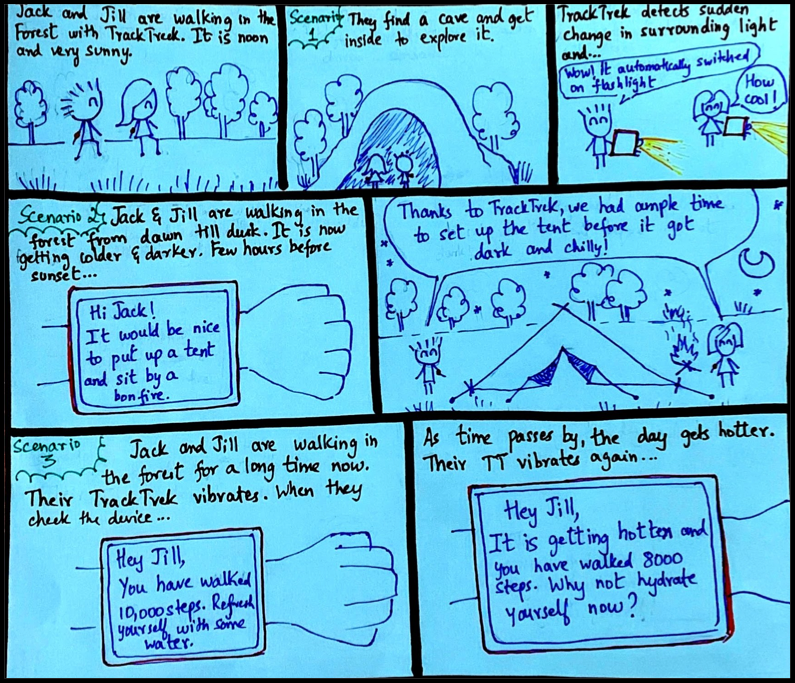 Jack and Jill are walking in the
Forest with TrackTreck. It is noon
and very sunny.
Scenario
1
They find a cave and get
inside to explore it.
TrackTrek detects sudden
change in surrounding light
and...
Wow! It automatically switched
on flashlight
How
cool!
Scenario 2:
Jack & Jill are walking in the
forest from dawn till dusk. It is now
getting colder & darker. Few hours before
sunset...
Hi Jack!
It would be nice
to put up a tent
and sit by a
bonfire.
Thanks to TrackTrek, we had ample time
to set up the tent before it got
dark and chilly!
Scenario
3
Jack and Jill are walking in
the forest for a long time now.
Their TrackTrek vibrates. When they
check the device...
Hey Jill,
You have walked
10,000 steps. Refresh
yourself with some
water.
As time passes by, the day gets hotter.
Their TT vibrates again...
Hey Jill,
It is getting hotter and
you have walked 8000
steps. Why not hydrate
yourself now?